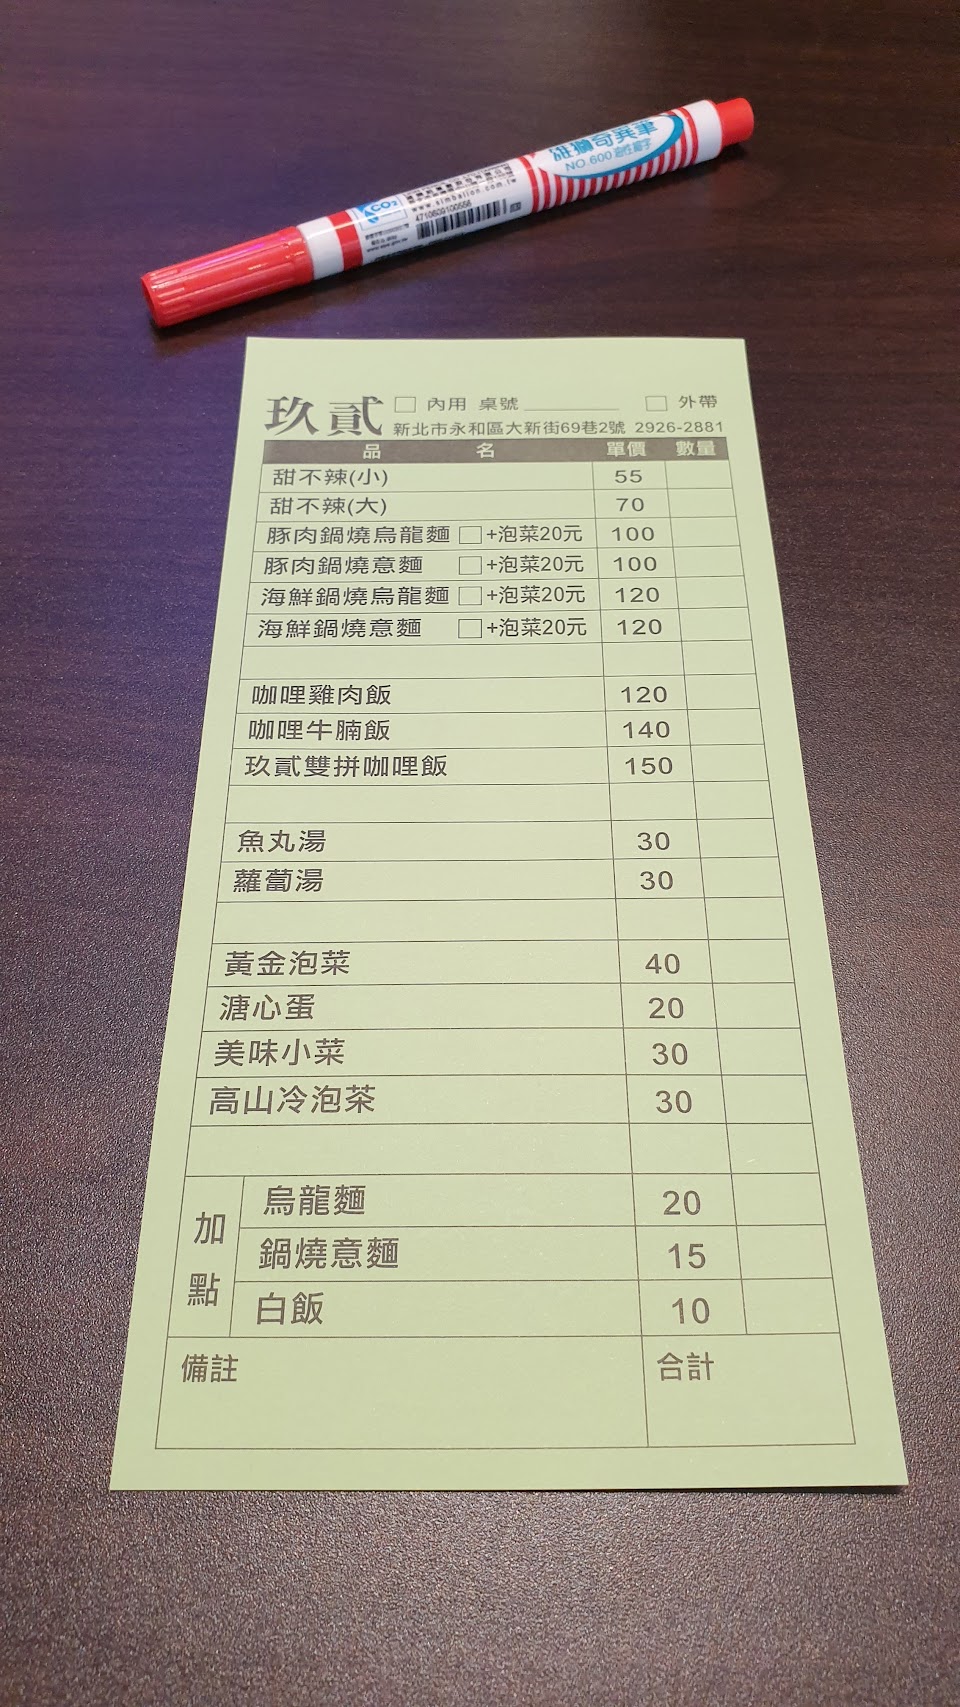 雄獅奇異筆
NO.600 油性 箱子
CO2
www.simbalion.com.tw
4710609100556
玖貳 □ 內用 桌號________ □ 外帶
新北市永和區大新街69巷2號 2926-2881
品 名 單價 數量
甜不辣(小) 55
甜不辣(大) 70
豚肉鍋燒烏龍麵 □+泡菜20元 100
豚肉鍋燒意麵 □+泡菜20元 100
海鮮鍋燒烏龍麵 □+泡菜20元 120
海鮮鍋燒意麵 □+泡菜20元 120
咖哩雞肉飯 120
咖哩牛腩飯 140
玖貳雙拼咖哩飯 150
魚丸湯 30
蘿蔔湯 30
黃金泡菜 40
溏心蛋 20
美味小菜 30
高山冷泡茶 30
加點
烏龍麵 20
鍋燒意麵 15
白飯 10
備註 合計